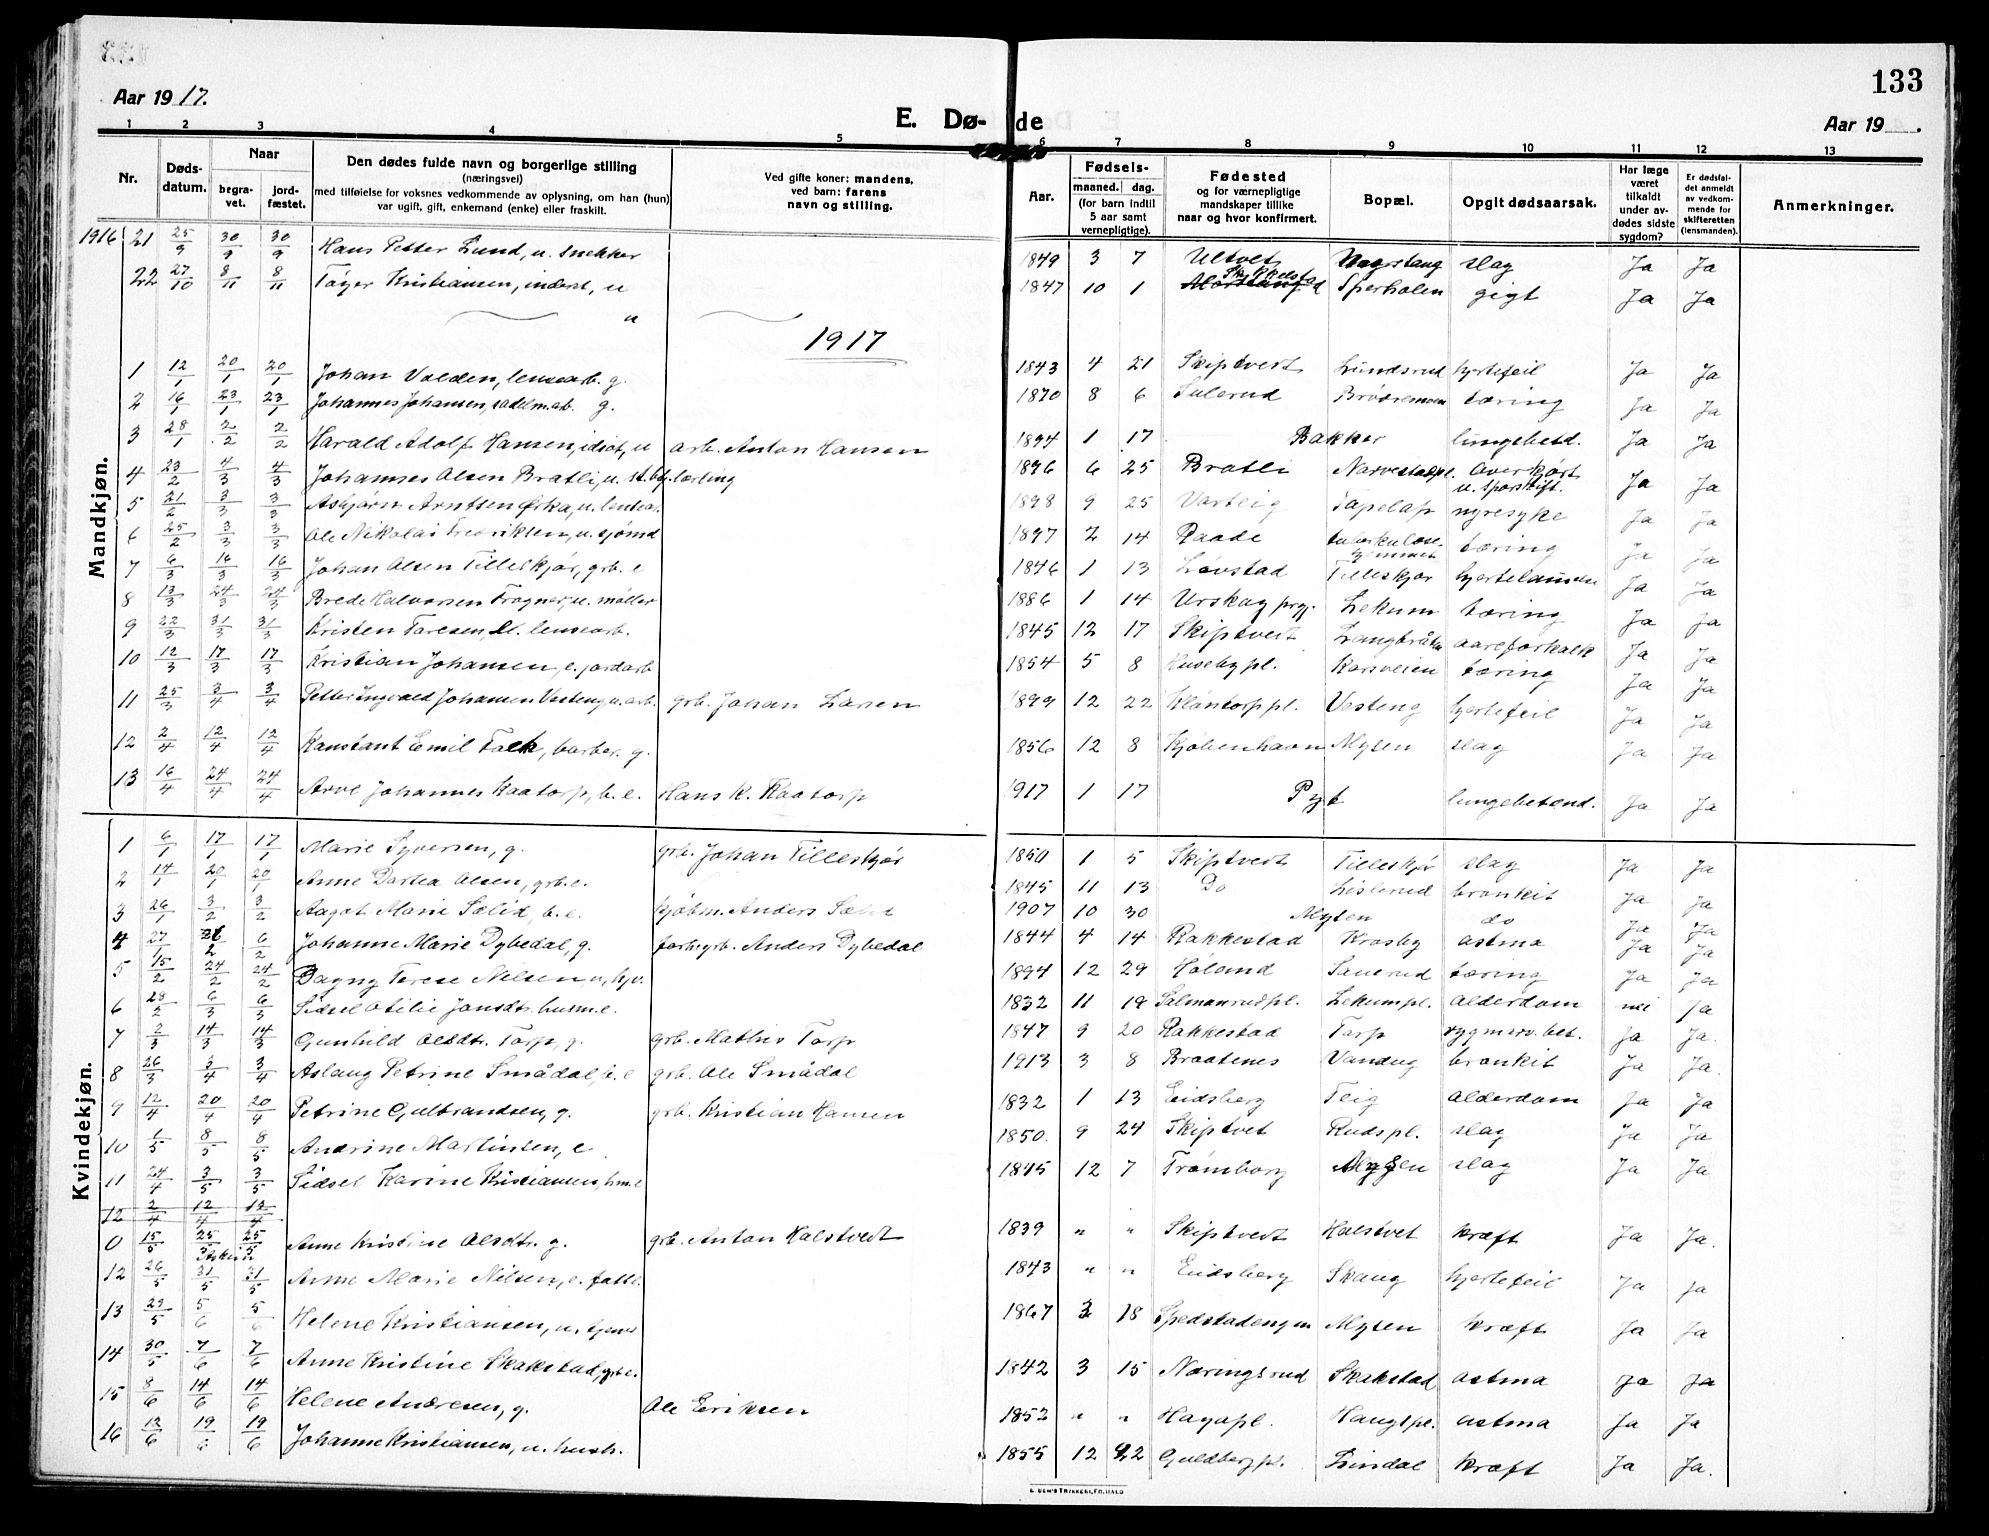 133
Aar 1917.
E. Dø- de
Aar 19 .
1 2 3 4 5 6 7 8 9 10 11 12 13
Nr.
Døds-datum.
Naar
begra-vet.
jord-fæstet.
Den dødes fulde navn og borgerlige stilling
(næringsvei)
med tilføielse for voksnes vedkommende av oplysning, om han (hun)
var ugift, gift, enkemand (enke) eller fraskilt.
Ved gifte koner: mandens,
ved barn: farens
navn og stilling.
Aar.
Fødsels-
maaned. dag.
(for barn indtil
5 aar samt
vernepligtige).
Fødested
og for værnepligtige
mandskaper tillike
naar og hvor konfirmert.
Bopæl.
Opgit dødsaarsak.
Har læge
været
tilkaldt
under av-
dødes sidste
sygdom?
Er dødsfal-
det anmeldt
av vedkom-
mende for
skifteretten
(lensmanden).
Anmerkninger.
Mandkjøn.
1916 21 25/9 30/9 30/9 Hans Petter Lund, u. snekker 1849 3 7 Ultvet slag Ja Ja
22 27/10 8/11 8/11 Tøger Kristiansen, inderst, u 1847 10 1 Sperholen gigt Ja Ja
u
1917
1 12/1 20/1 20/1 Johan Volden, lensearb. g. 1843 4 21 Skiptvest Lundsrud hjertefeil Ja Ja
2 16/1 23/1 23/1 Johannes Johansen, sadelm.arb. g. 1870 8 6 Sulerud Brødremoen tæring Ja Ja
3 28/1 2/2 2/2 Harald Adolf Hansen, idiot, u arb. Anton Hansen 1894 1 17 Bakker lungebetd. Ja Ja
4 23/2 4/3 4/3 Johannes Olsen Bratli, u. st.bg. lærling 1896 6 25 Bratli Narvestadpl. overkjørt u. sporskift. Ja Ja
5 21/2 3/3 3/3 Asbjørn Arntsen Ørka, u. lensear. 1898 9 25 Varteig Tapelap nyresyke Ja Ja
6 25/2 3/3 3/3 Ole Nikolai Fredriksen, u. sjømd 1897 2 14 Raade tuberkulose-hjemmet tæring Ja Ja
7 6/3 16/3 16/3 Johan Olsen Tilleskjør, grb. e 1846 1 13 Løvstad Tilleskjør hjertelammelse Ja Ja
8 13/3 24/3 24/3 Brede Halvorsen Frogner, u. møller 1886 1 14 Urskog prgj. Lekum tæring Ja Ja
9 22/3 31/3 31/3 Kristen Taresen, lensearb. 1845 12 17 Skiptvest Langbråten aareforkalk Ja Ja
10 12/3 17/3 17/3 Kristian Johansen, e. jordarb 1854 5 8 Husebypl. Korsveien tæring Ja Ja
11 25/3 3/4 3/4 Petter Ingvald Johansen Vesteng u. arb. grb. Johan Larsen 1899 12 22 Kløntorp pl. Vesteng hjertefeil Ja Ja
12 2/4 12/4 12/4 Konstant Emil Falk, barber. g. 1856 12 8 Kjøbenhavn Mysen slag Ja Ja
13 16/4 24/4 24/4 Arve Johannes Kaatorp, b. e. Hans K. Kaatorp 1917 1 17 Pyt lungebetend. Ja Ja
Kvindekjøn.
1 6/1 17/1 17/1 Marie Syversen, g. grb. Johan Tilleskjør 1850 1 5 Skiptvedt Tilleskjør slag Ja Ja
2 14/1 20/1 20/1 Anne Dortea Olsen, grb. e. 1845 11 13 Do Lislerud bronkit Ja Ja
3 26/1 3/2 3/2 Aagot Marie Sælid, b. e. kjøbm. Anders Sælid 1907 10 30 Mysen do Ja Ja
4 27/1 6/2 Johanne Marie Dybedal, g. forh. grb. Anders Dybedal 1844 4 14 Rakkestad Krosby astma Ja Ja
5 15/2 24/2 24/2 Dagny Terese Nilsen u, hjv. 1894 12 29 Høland Sauerud tæring Ja Ja
6 28/2 6/3 6/3 Sidsel Otilie Jansdtr. husm.e. 1832 11 19 Salmonrudpl. Lekumpl. alderdom nei Ja
7 2/3 14/3 14/3 Gunhild Olsdtr. Torp, g. grb. Mathis Torp 1847 9 20 Rakkestad Torp rygmarv. bet. Ja Ja.
8 26/3 3/4 3/4 Aslaug Petrine Smådal, b. e grb. Ole Smådal 1913 3 8 Braatenes Vandug bronkit Ja Ja.
9 12/4 20/4 20/4 Petrine Gulbrandsen, g. grb. Kristian Hansen 1832 1 13 Eidsberg Teig alderdom Ja Ja
10 1/5 8/5 8/5 Andrine Martinsen, e 1850. 9 24 Skiptvet Rudspl. slag Ja Ja
11 24/4 3/5 3/5 Sidsel Karine Kristiansen, hm.e 1845 12 7 Trømborg Mysen slag Ja Ja
12 2/4 12/4 12/4
0 15/5 25/5 25/5 Anne Kristine Olsdtr. g. grb. Anton Halstvedt 1839 " " Skiptvedt Halstvet kræft Ja Ja.
12 26/5 31/5 31/5 Anne Marie Nilsen, e. fattl. 1843 " " Eidsberg Skaug hjertefeil Ja Ja
13 29/5 5/6 5/6 Helene Kristiansen, u. tjenes 1867 3 18 Spedstadengen Mysen kræft Ja Ja
14 30/5 7/6 7/6 Anne Kristine Skakstad, grb e. 1842 3 15 Næringsrud Skakstad astma Ja Ja
15 8/6 14/6 14/6 Helene Andresen, g. Ole Eriksen 1852 " " Hagapl. Haugspl. astma Ja Ja
16 12/6 19/6 19/6 Johanne Kristiansen, u. hush. 1855 12 22 Guldbergpl. Lindal kræft Ja Ja.